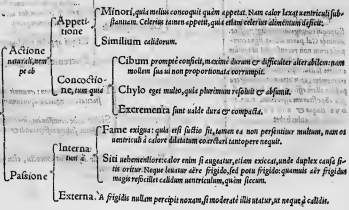 Minor, quia melius concoquit quàm appetat. Nam calor laxat ventriculi sub-
stantiam. Celerius tamen appetit, quia etiam celerius alimentum deficit.
Appeti-
tione
Similium calidorum.
Actione
naturali, nem
pe ab
Cibum promptè conficit, maximè durum & difficulter alterabilem: nam
mollem suo ui non proportionatũ corrumpit.
Concoctio-
ne, tum quia
Chylo eget multo, quia plurimum resoluit & absumit.
Excrementa sunt ualde dura & compacta.
Fame exigua: quia etsi suctio fit, tamen ea non persentitur multum, nam os
uentriculi à calore dilatatum coarctari tantopere nequit.
Interna
tum à
Siti uehementiore: calor enim si augeatur, etiam exiccat, unde duplex causa si-
tis oritur. Neque leuatur aëre frigido, sed potu frigido: quamuis aër frigidus
magis refocillet calidum uentriculum, quàm siccum.
Passione
Externa. A frigidis nullam percipit noxam, si moderatè illis utatur, ut neque à calidis.